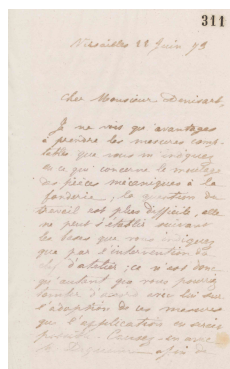 311
Versailles 11 Juin 73
Cher Monsieur Denisart,
Je ne vois qu'avantages
à prendre les mesures comp-
tables que vous m'indiquez
en ce qui concerne le moulage
des pièces mécaniques à la
fonderie, la question du
travail est plus difficile, elle
ne peut s'établir suivant
les bases que vous indiquez
que par l'intervention du
chef d'atelier, ce n'est donc
qu'autant que vous pourrez
tomber d'accord avec lui sur
l'adoption de ces mesures
que l'application en sera
possible. Causez-en avec
afin de